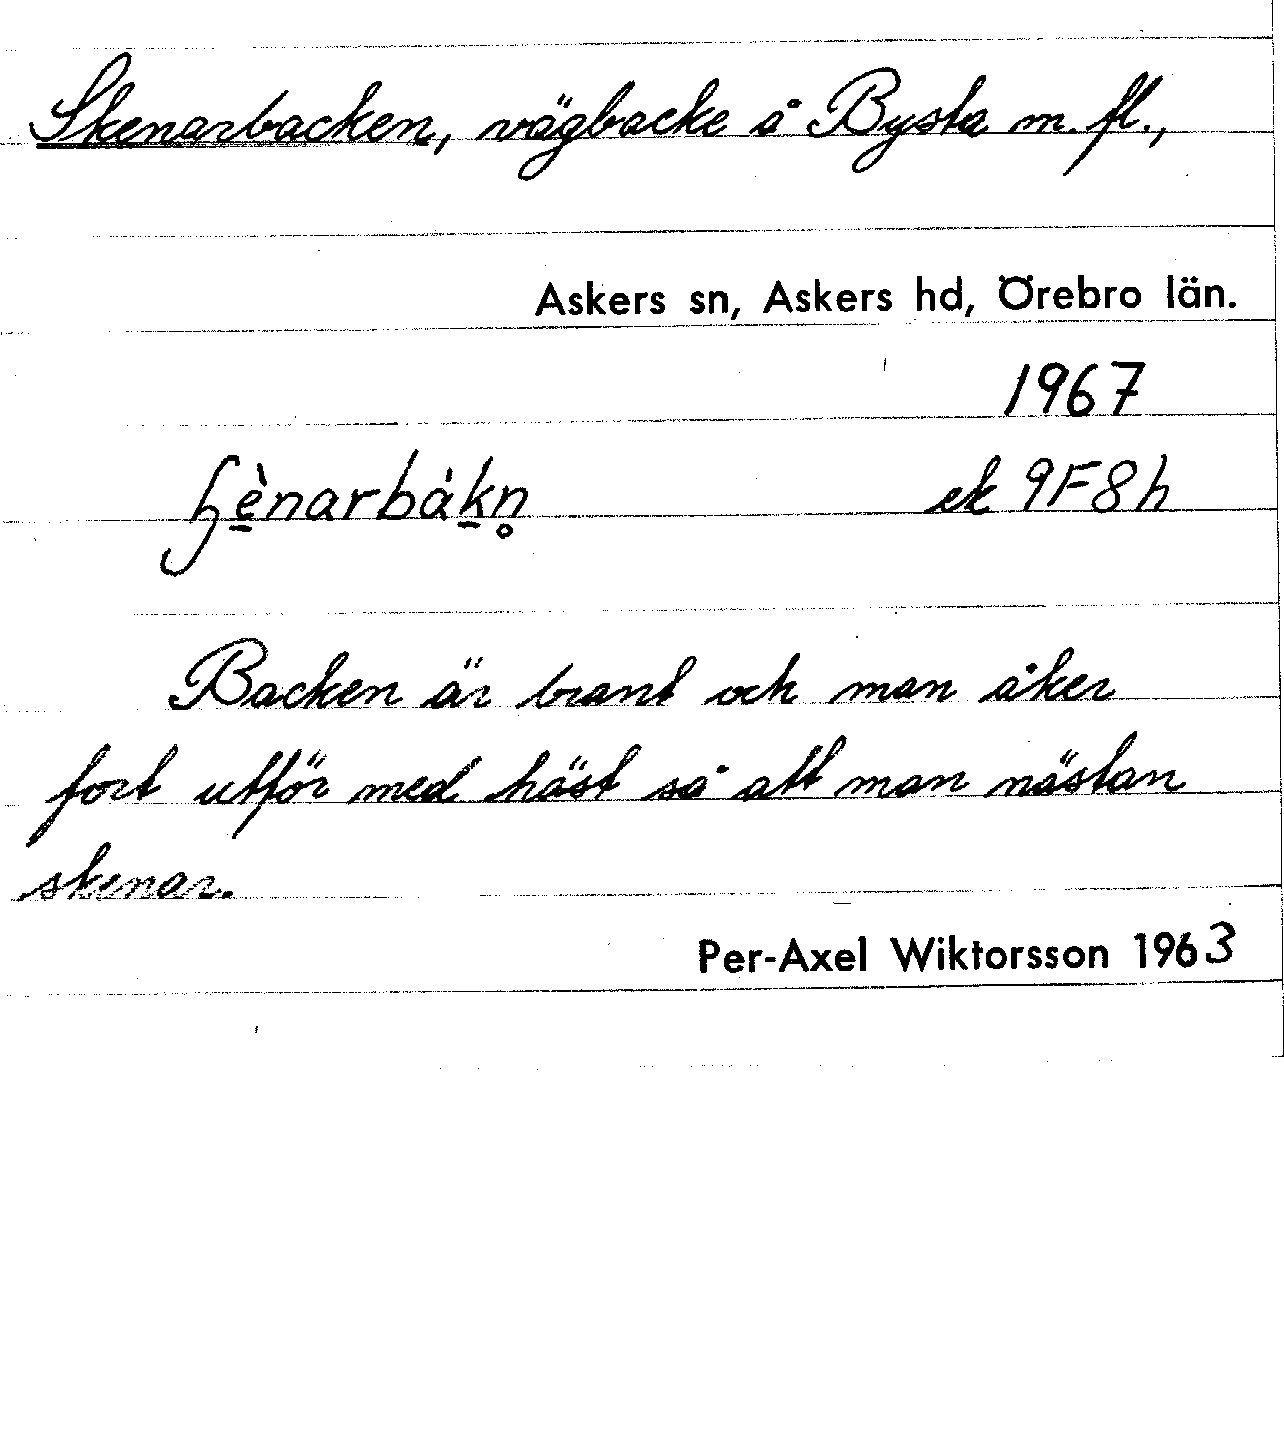 Skenarbacken, vägbacke å Bysta m. fl.,
Askers sn, Askers hd, Örebro län.
1967
ɧè̱narbàḵn̥ ek 9F8h
Backen är brant och man åker
fort utför med häst så att man nästan
skenar.
Per-Axel Wiktorsson 1963